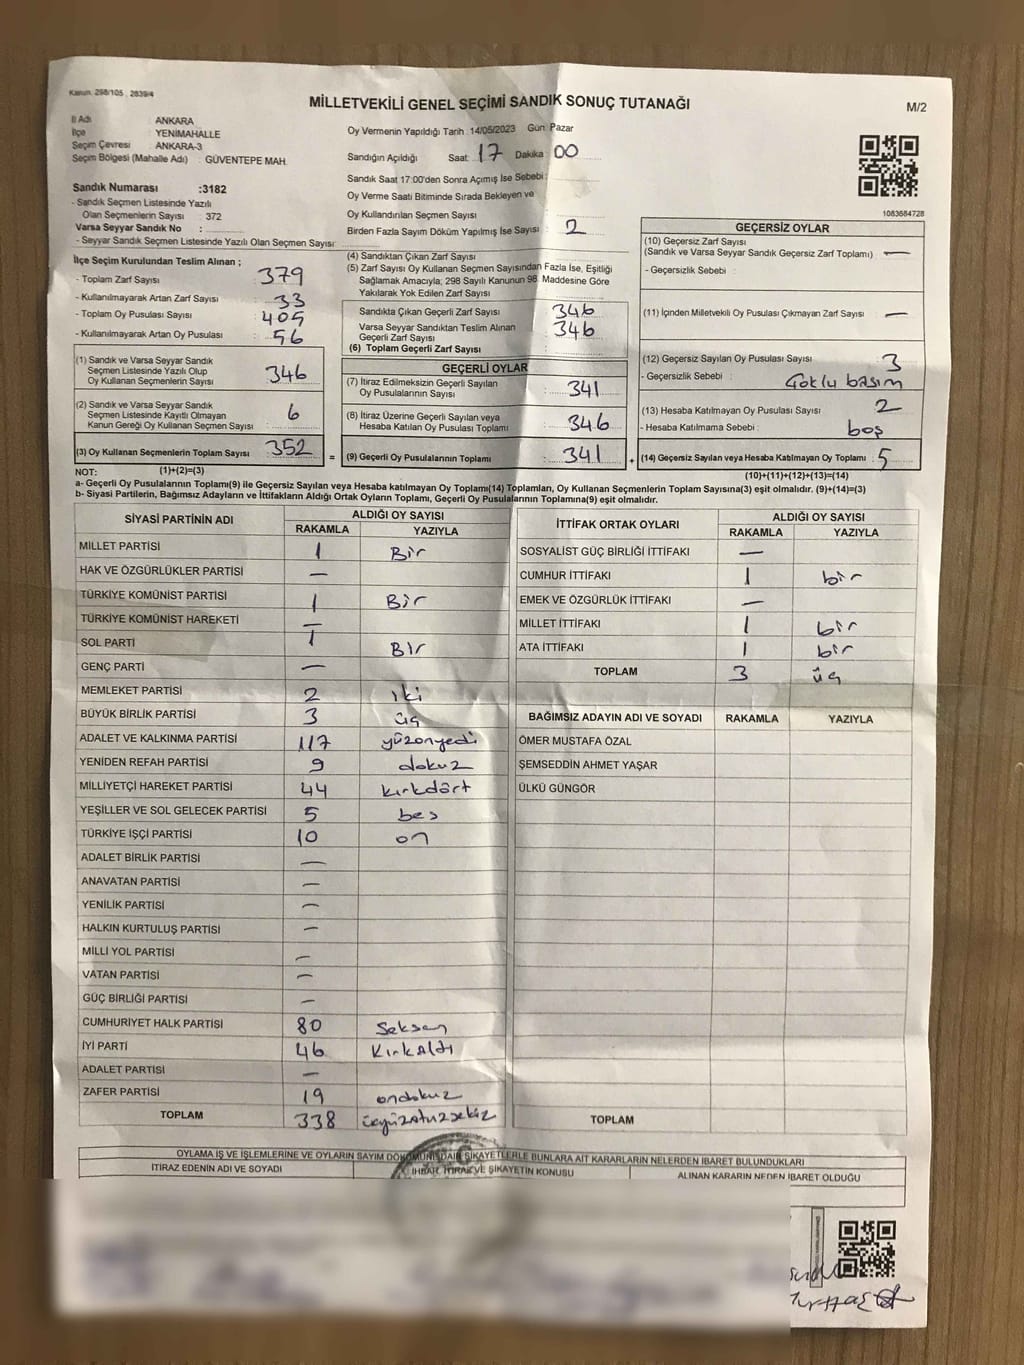 Kanun. 298/105 , 2839/4
MİLLETVEKİLİ GENEL SEÇİMİ SANDIK SONUÇ TUTANAĞI
M/2
İl Adı : ANKARA
İlçe : YENİMAHALLE
Seçim Çevresi : ANKARA-3
Seçim Bölgesi (Mahalle Adı) : GÜVENTEPE MAH.
Sandık Numarası :3182
- Sandık Seçmen Listesinde Yazılı
Olan Seçmenlerin Sayısı : 372
Varsa Seyyar Sandık No :
- Seyyar Sandık Seçmen Listesinde Yazılı Olan Seçmen Sayısı :
Oy Vermenin Yapıldığı Tarih : 14/05/2023 Gün: Pazar
Sandığın Açıldığı Saat: 17 Dakika: 00
Sandık Saat 17:00'den Sonra Açımış İse Sebebi :
Oy Verme Saati Bitiminde Sırada Bekleyen ve
Oy Kullandırılan Seçmen Sayısı :
Birden Fazla Sayım Döküm Yapılmış İse Sayısı : 2
1083684728
İlçe Seçim Kurulundan Teslim Alınan ;
- Toplam Zarf Sayısı : 379
- Kullanılmayarak Artan Zarf Sayısı : 33
- Toplam Oy Pusulası Sayısı : 405
- Kullanılmayarak Artan Oy Pusulası : 56
(1) Sandık ve Varsa Seyyar Sandık
Seçmen Listesinde Yazılı Olup
Oy Kullanan Seçmenlerin Sayısı : 346
(2) Sandık ve Varsa Seyyar Sandık
Seçmen Listesinde Kayıtlı Olmayan
Kanun Gereği Oy Kullanan Seçmen Sayısı : 6
(3) Oy Kullanan Seçmenlerin Toplam Sayısı : 352
(4) Sandıktan Çıkan Zarf Sayısı :
(5) Zarf Sayısı Oy Kullanan Seçmen Sayısından Fazla İse, Eşitliği
Sağlamak Amacıyla; 298 Sayılı Kanunun 98. Maddesine Göre
Yakılarak Yok Edilen Zarf Sayısı :
Sandıkta Çıkan Geçerli Zarf Sayısı : 346
Varsa Seyyar Sandıktan Teslim Alınan
Geçerli Zarf Sayısı : 346
(6) Toplam Geçerli Zarf Sayısı :
GEÇERLİ OYLAR
(7) İtiraz Edilmeksizin Geçerli Sayılan
Oy Pusulalarının Sayısı : 341
(8) İtiraz Üzerine Geçerli Sayılan veya
Hesaba Katılan Oy Pusulası Toplamı : 346
= (9) Geçerli Oy Pusulalarının Toplamı : 341
GEÇERSİZ OYLAR
(10) Geçersiz Zarf Sayısı
(Sandık ve Varsa Seyyar Sandık Geçersiz Zarf Toplamı) : —
- Geçersizlik Sebebi :
(11) İçinden Milletvekili Oy Pusulası Çıkmayan Zarf Sayısı : —
(12) Geçersiz Sayılan Oy Pusulası Sayısı : 3
- Geçersizlik Sebebi : Çoklu basım
(13) Hesaba Katılmayan Oy Pusulası Sayısı : 2
- Hesaba Katılmama Sebebi : boş
+ (14) Geçersiz Sayılan veya Hesaba Katılmayan Oy Toplamı : 5
NOT: (1)+(2)=(3)
(10)+(11)+(12)+(13)=(14)
a- Geçerli Oy Pusulalarının Toplamı(9) ile Geçersiz Sayılan veya Hesaba katılmayan Oy Toplamı(14) Toplamları, Oy Kullanan Seçmenlerin Toplam Sayısına(3) eşit olmalıdır. (9)+(14)=(3)
b- Siyasi Partilerin, Bağımsız Adayların ve İttifakların Aldığı Ortak Oyların Toplamı, Geçerli Oy Pusulalarının Toplamına(9) eşit olmalıdır.
SİYASİ PARTİNİN ADI ALDIĞI OY SAYISI
RAKAMLA YAZIYLA
MİLLET PARTİSİ 1 Bir
HAK VE ÖZGÜRLÜKLER PARTİSİ —
TÜRKİYE KOMÜNİST PARTİSİ 1 Bir
TÜRKİYE KOMÜNİST HAREKETİ —
SOL PARTİ 1 Bir
GENÇ PARTİ —
MEMLEKET PARTİSİ 2 iki
BÜYÜK BİRLİK PARTİSİ 3 üç
ADALET VE KALKINMA PARTİSİ 117 yüzonyedi
YENİDEN REFAH PARTİSİ 9 dokuz
MİLLİYETÇİ HAREKET PARTİSİ 44 kırkdört
YEŞİLLER VE SOL GELECEK PARTİSİ 5 beş
TÜRKİYE İŞÇİ PARTİSİ 10 on
ADALET BİRLİK PARTİSİ —
ANAVATAN PARTİSİ —
YENİLİK PARTİSİ —
HALKIN KURTULUŞ PARTİSİ —
MİLLİ YOL PARTİSİ —
VATAN PARTİSİ —
GÜÇ BİRLİĞİ PARTİSİ —
CUMHURİYET HALK PARTİSİ 80 Seksen
İYİ PARTİ 46 Kırkaltı
ADALET PARTİSİ —
ZAFER PARTİSİ 19 ondokuz
TOPLAM 338 üçyüzotuzsekiz
İTTİFAK ORTAK OYLARI ALDIĞI OY SAYISI
RAKAMLA YAZIYLA
SOSYALİST GÜÇ BİRLİĞİ İTTİFAKI —
CUMHUR İTTİFAKI 1 bir
EMEK VE ÖZGÜRLÜK İTTİFAKI —
MİLLET İTTİFAKI 1 bir
ATA İTTİFAKI 1 bir
TOPLAM 3 üç
BAĞIMSIZ ADAYIN ADI VE SOYADI RAKAMLA YAZIYLA
ÖMER MUSTAFA ÖZAL
ŞEMSEDDİN AHMET YAŞAR
ÜLKÜ GÜNGÖR
TOPLAM
OYLAMA İŞ VE İŞLEMLERİNE VE OYLARIN SAYIM DÖKÜMÜNE DAİR ŞİKAYETLERLE BUNLARA AİT KARARLARIN NELERDEN İBARET BULUNDUKLARI
İTİRAZ EDENİN ADI VE SOYADI
İHBAR, İTİRAZ VE ŞİKAYETİN KONUSU
ALINAN KARARIN NEDEN İBARET OLDUĞU